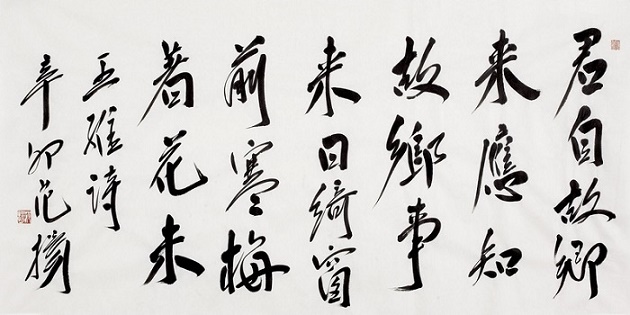 君自故鄉
来應知
故鄉事
来日綺窗
前寒梅
著花未
王維詩
辛卯范